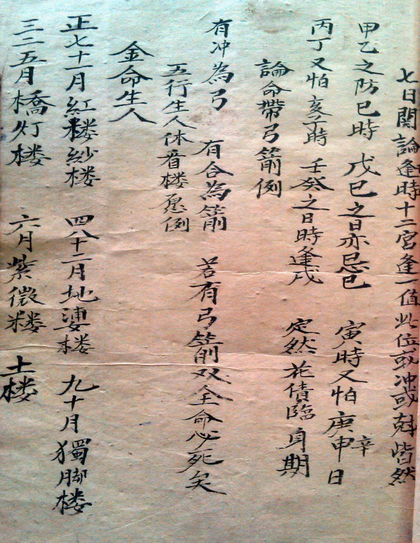 七日関論逢時十二宮逢一值此位或冲或尅皆然
甲乙之防巳時　戊巳之日亦忌巳　寅時又怕庚申辛日
丙丁又怕亥子時　壬癸之日時逢戌　定然花債臨身期
論命帶弓箭例
有冲為弓　有合為箭　若有弓箭双全命必死矣
五行生人休看楼愿例
金命生人
正七十一月紅楼紗楼　四八十二月地婆楼　九十月獨脚楼
三二五月橋灯楼　六月紫微楼　土楼